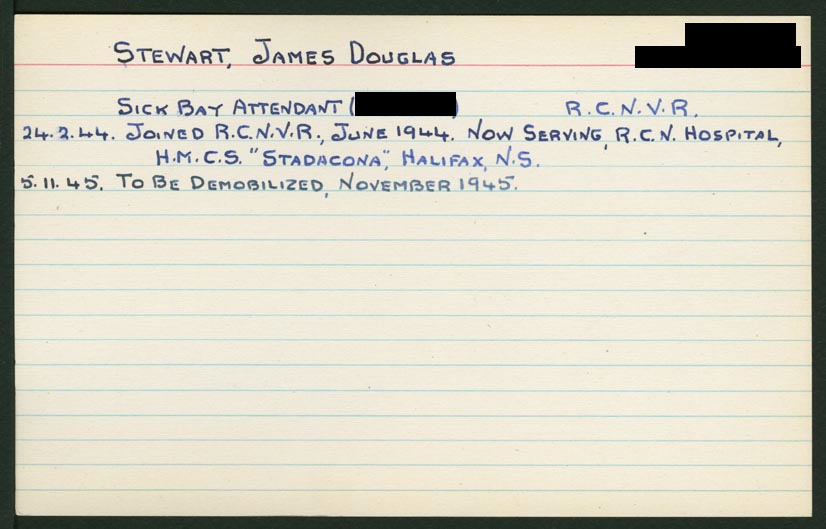 STEWART, JAMES DOUGLAS
SICK BAY ATTENDANT ( ) R.C.N.V.R.
24.2.44. JOINED R.C.N.V.R., JUNE 1944. NOW SERVING, R.C.N. HOSPITAL,
H.M.C.S. "STADACONA", HALIFAX, N.S.
5.11.45. TO BE DEMOBILIZED, NOVEMBER 1945.